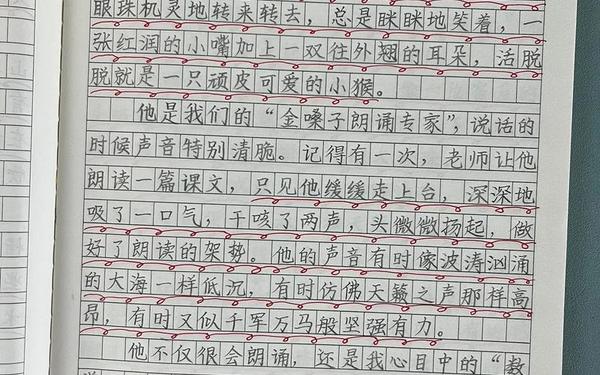 眼珠机灵地转来转去，总是眯眯地笑着，一
张红润的小嘴加上一双往外翘的耳朵，活脱
脱就是一只顽皮可爱的小猴。
他是我们的“金嗓子朗诵专家”，说话的
时候声音特别清脆。记得有一次，老师让他
朗读一篇课文，只见他缓缓走上台，深深地
吸了一口气，干咳了两声，头微微扬起，做
好了朗读的架势。他的声音有时像波涛汹涌
的大海一样低沉，有时仿佛天籁之声那样高
昂，有时又似千军万马般坚强有力。
他不仅很会朗诵，还是我心目中的“数